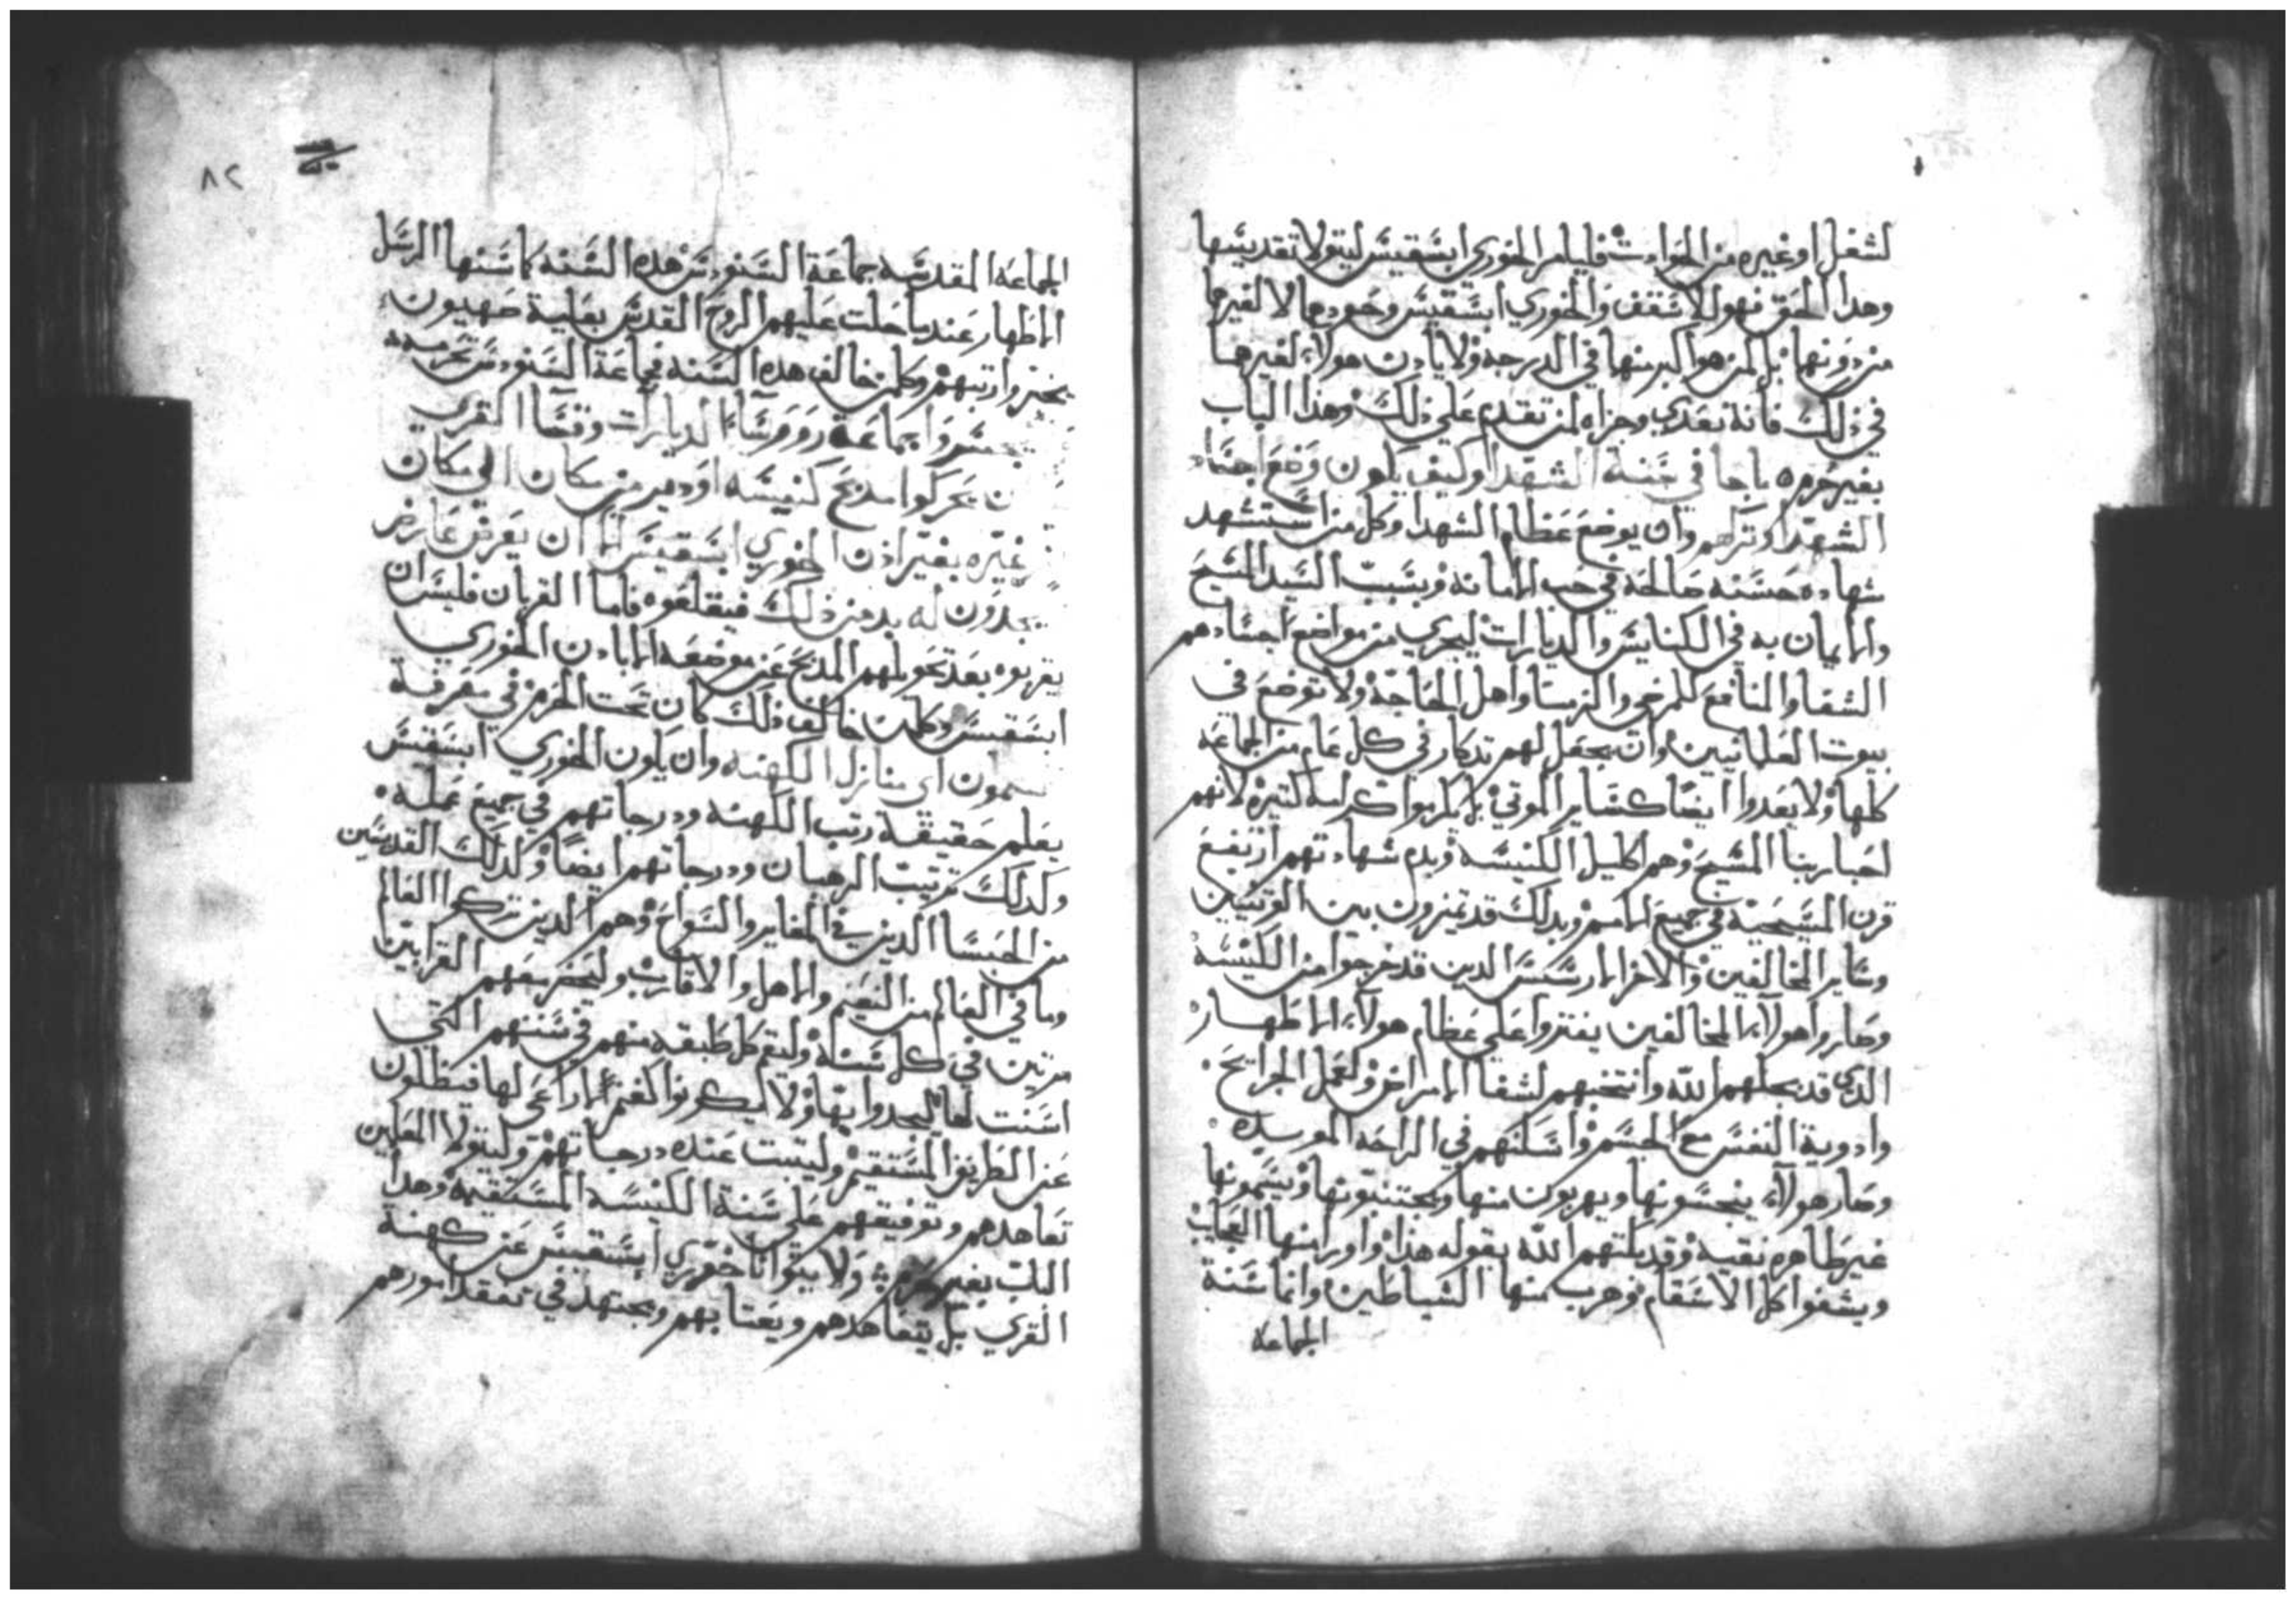 لشغل او غيره من الحوادث فليامر الخوري ابسقبس ليتولا تقديسها
وهدا الحق فهو للاسقف والخوري ابسقبس وحدودها لا لغيرها
من دونها بل لمن هو اكبر منها في الدرجه ولا يادن هولاء لغيرها
في ذلك فانه تعدي وجزاء لمن تقدم على ذلك وهذا الباب
بغير حرم ه ماجا في سنة الشهدا وكيف يكون وضع اجساد
الشهدا وتركهم وان يوضع عظام الشهدا وكل من استشهد
شهاده حسنه صالحه في حب الامانه وبسبب السيد المسيح
والايمان به في الكنايس والديارات ليجري من مواضع اجسادهم
الشفا والمنافع للمرضى والزمنا واهل الحاجة ولا توضع في
بيوت العلمانيين وان يجعل لهم تدكار في كل عام من الجماعه
كلها ولا يعدوا ايضا كساير الموتي بل يكرموا كرامه كتيره لانهم
احبا ربنا المسيح وهم اكليل الكنيسه وبدم شهادتهم ارتفع
قرن المسيحية في جميع الامم وبدلك قد تميزون بين الوتنيين
وساير المخالفين والاخر الارسسس الدين قد خرجوا من الكنيسه
وصاروا هولاء المخالفين يفتروا على عظام هولاء الاطهار
الدي قد بجلهم الله وانتخبهم لشفا الامراض ولعمل الجرايح
وادوية النفس مع الجسم واسكنهم في الراحه الموبده
وصار هولاء ينجسونها ويهربون منها ويجتنبونها ويسمونها
غير طاهره نقيه وقد بكتهم الله بقوله هذا واورا منها العجايب
ويشفوا كل الاسقام وهرب منها الشياطين وانما سنة
الجماعة
٨٢
الجماعه المقدسه جماعة السنودس هده السنه كما سنها الرسل
الاطهار عندما حلت عليهم الروح القدس بعلية صهيون
وكلمن خالف هده السنه فجماعة السنودس تحرمه
جماعة رووسا الديارات وقسا القرى
يحركوا مدبح كنيسه او دير من مكان الي مكان
غيره بغير اذن الخوري ابسقبس الا ان يعرض عارض
يجدون له بد من ذلك فيقلعوه فاما القربان فليس ان
يقربوه بعد تحويلهم المدبح عن موضعه الا بادن الخوري
ابسقبس وكلمن خالف ذلك كان تحت الحرم في معرفة
اي منازل الكهنه وان يكون الخوري ابسقبس
يعلم حقيقة رتب الكهنه ودرجاتهم في جميع عمله
وكدلك ترتيب الرهبان ودرجاتهم ايضا وكدلك القديسين
من الحبسا الدين في المغاير والسواح وهم الدين تركوا العالم
وما في العالم من النعيم والاهل والاقارب وليحضر معهم القرابين
مرتين في كل سنه وليقم كل طبقه منهم في سننهم التي
استنت لها ليجدوا بها ولا يكونوا كغنم لا راعي لها فيظلون
عن الطريق المستقيم وليتبت عنده درجاتهم وليتولا المعلمين
تعاهدهم وتوفيقهم على سنة الكنيسه المستقيمه وهدا
الباب بغير حرم ولا يتوانا خوري ابسقبس عن كهنة
القرى بل يتعاهدهم ويعتنا بهم ويجتهد في تفقد امورهم